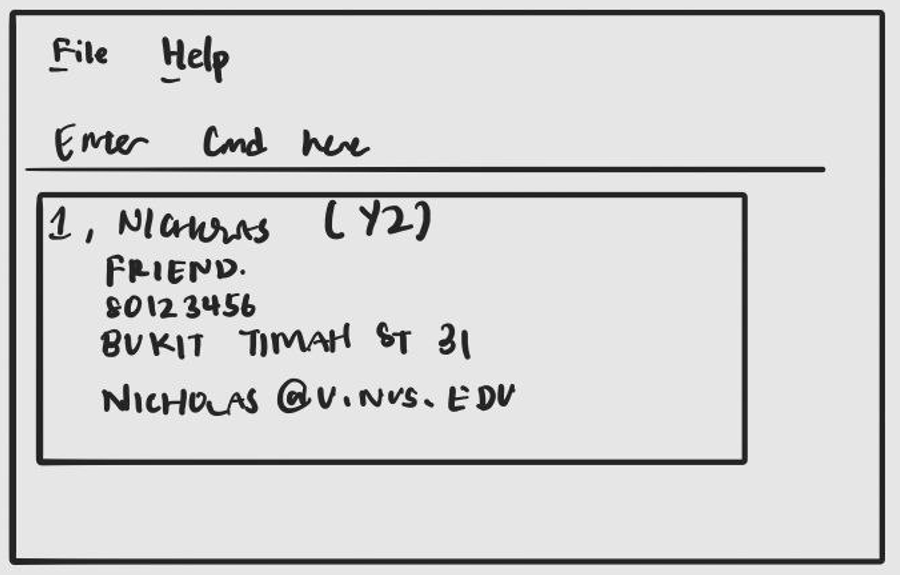 File Help
Enter Cmd here
1, NICHOLAS (Y2)
FRIEND.
80123456
BUKIT TIMAH ST 31
NICHOLAS @U.NUS. EDU